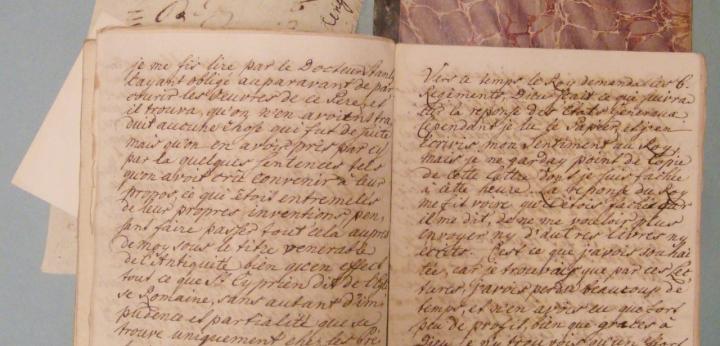 je me fis lire par le Docteur
l'ayant obligé auparavant de par
courir les Oeuvres de ce Père, et
il trouva, qu'on n'en avoit tra
duit aucune chose que fut de suite
mais qu'on en avoit pris par cy
par la quelques sentences tels
qu'on avoit crû convenir à leur
propos, ce qui etois entremelés
de leur propres inventions pen,
sant faire passer tout cela aupres
de moy sous le titre venerable
de l'Antiquité, bien qu'en effect
tout ce que St Cyprien dit de l'Egli
se Romaine, sans autant d'im
pudence et partialité que se
trouve uniquement chez les
Vers ce temps le Roy demanda les 6.
Regiments, Dieu sçait ce que
sur la reponse des Etats Generaux
Cependant je lû le Papier et j'en
écrivis mon Sentiment au Roy,
mais je ne garday point de Copie
de cette lettre dont je suis fachée
à cette heure. La reponse du Roy
me fit voire qu'il étois faché car
il me dit, de ne me vouloir plus
envoyer ny d'autres livres ny
ecrits. C'est ce que j'avois souhai
tée, car je trouvois que par ces Lec
tures j'avois perdu beaucoup de
temps, et n'en avois eu que fort
peu de profit, bien que graces à
Dieu je